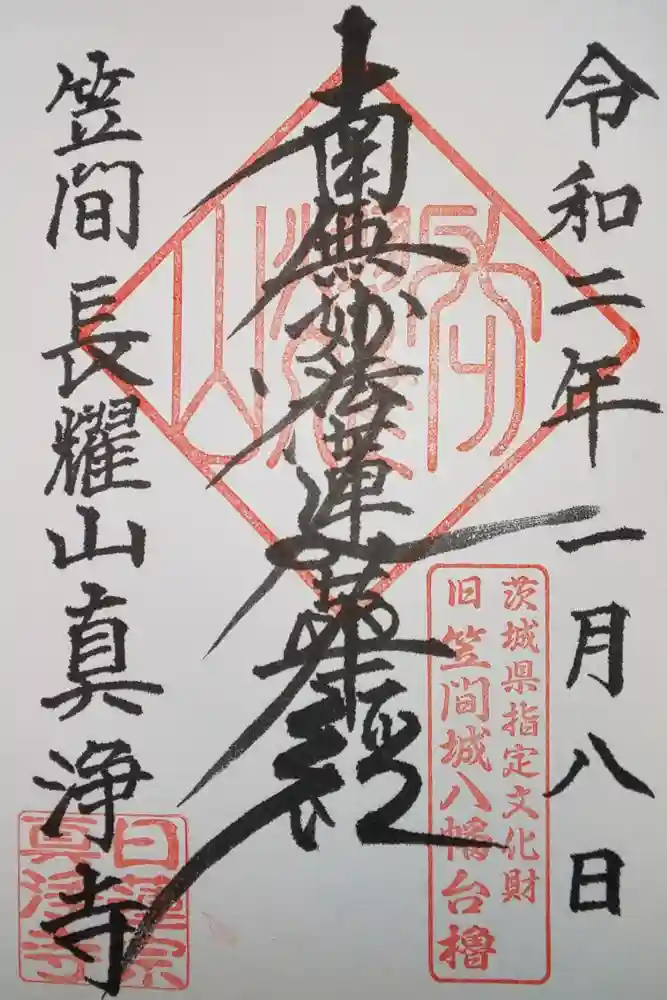 令和二年一月八日
茨城県指定文化財
旧笠間城八幡台櫓
南無妙法蓮華経
笠間長耀山真浄寺
日蓮宗
真浄寺